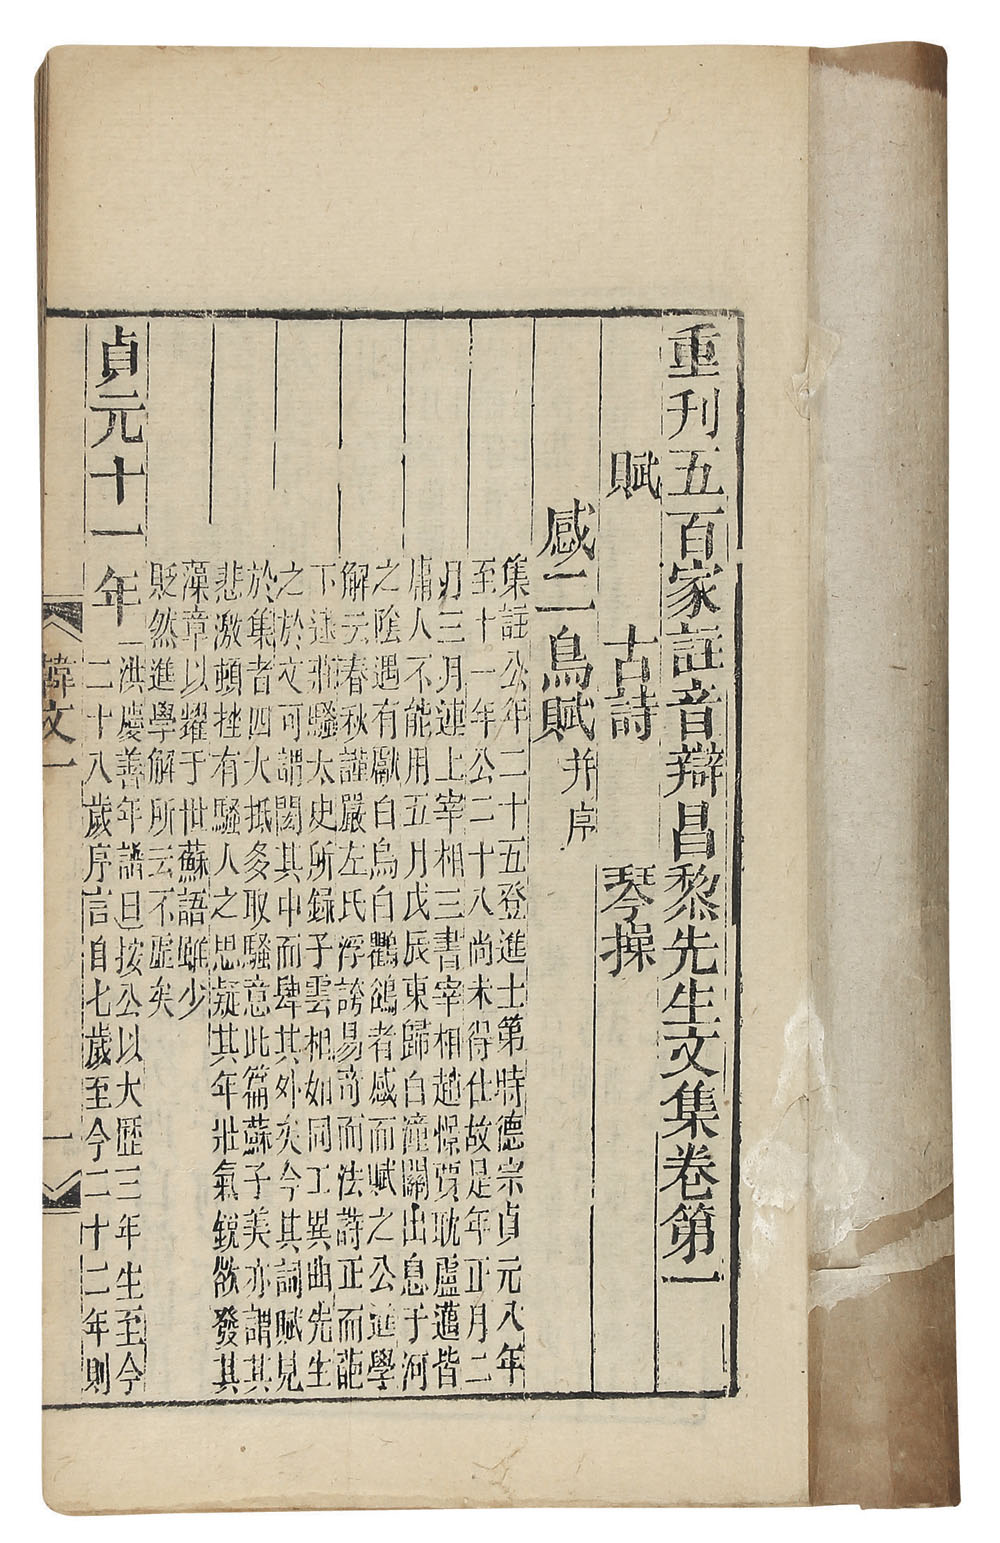 重刊五百家註音辯昌黎先生文集卷第一
賦 古詩 琴操
感二鳥賦 并序
集註公年二十五登進士第時德宗貞元八年
至十一年公二十八尚未得仕故是年正月二
月三月連上宰相三書宰相趙憬賈耽盧邁皆
庸人不能用五月戊辰東歸自潼關出息于河
之陰遇有獻白烏白鸜鵒者感而賦之公進學
解云春秋謹嚴左氏浮誇易奇而法詩正而葩
下逮莊騷太史所錄子雲相如同工異曲先生
之於文可謂閎其中而肆其外矣今其詞賦見
於集者四大抵多取騷意此篇蘇子美亦謂其
悲激頓挫有騷人之思疑其年壯氣銳欲發其
藻章以耀于世蘇語雖少
貶然進學解所云不虛矣
貞元十一年
洪慶善年譜曰按公以大歷三年生至今
二十八歲序言自七歲至今二十二年則
韓文一
一